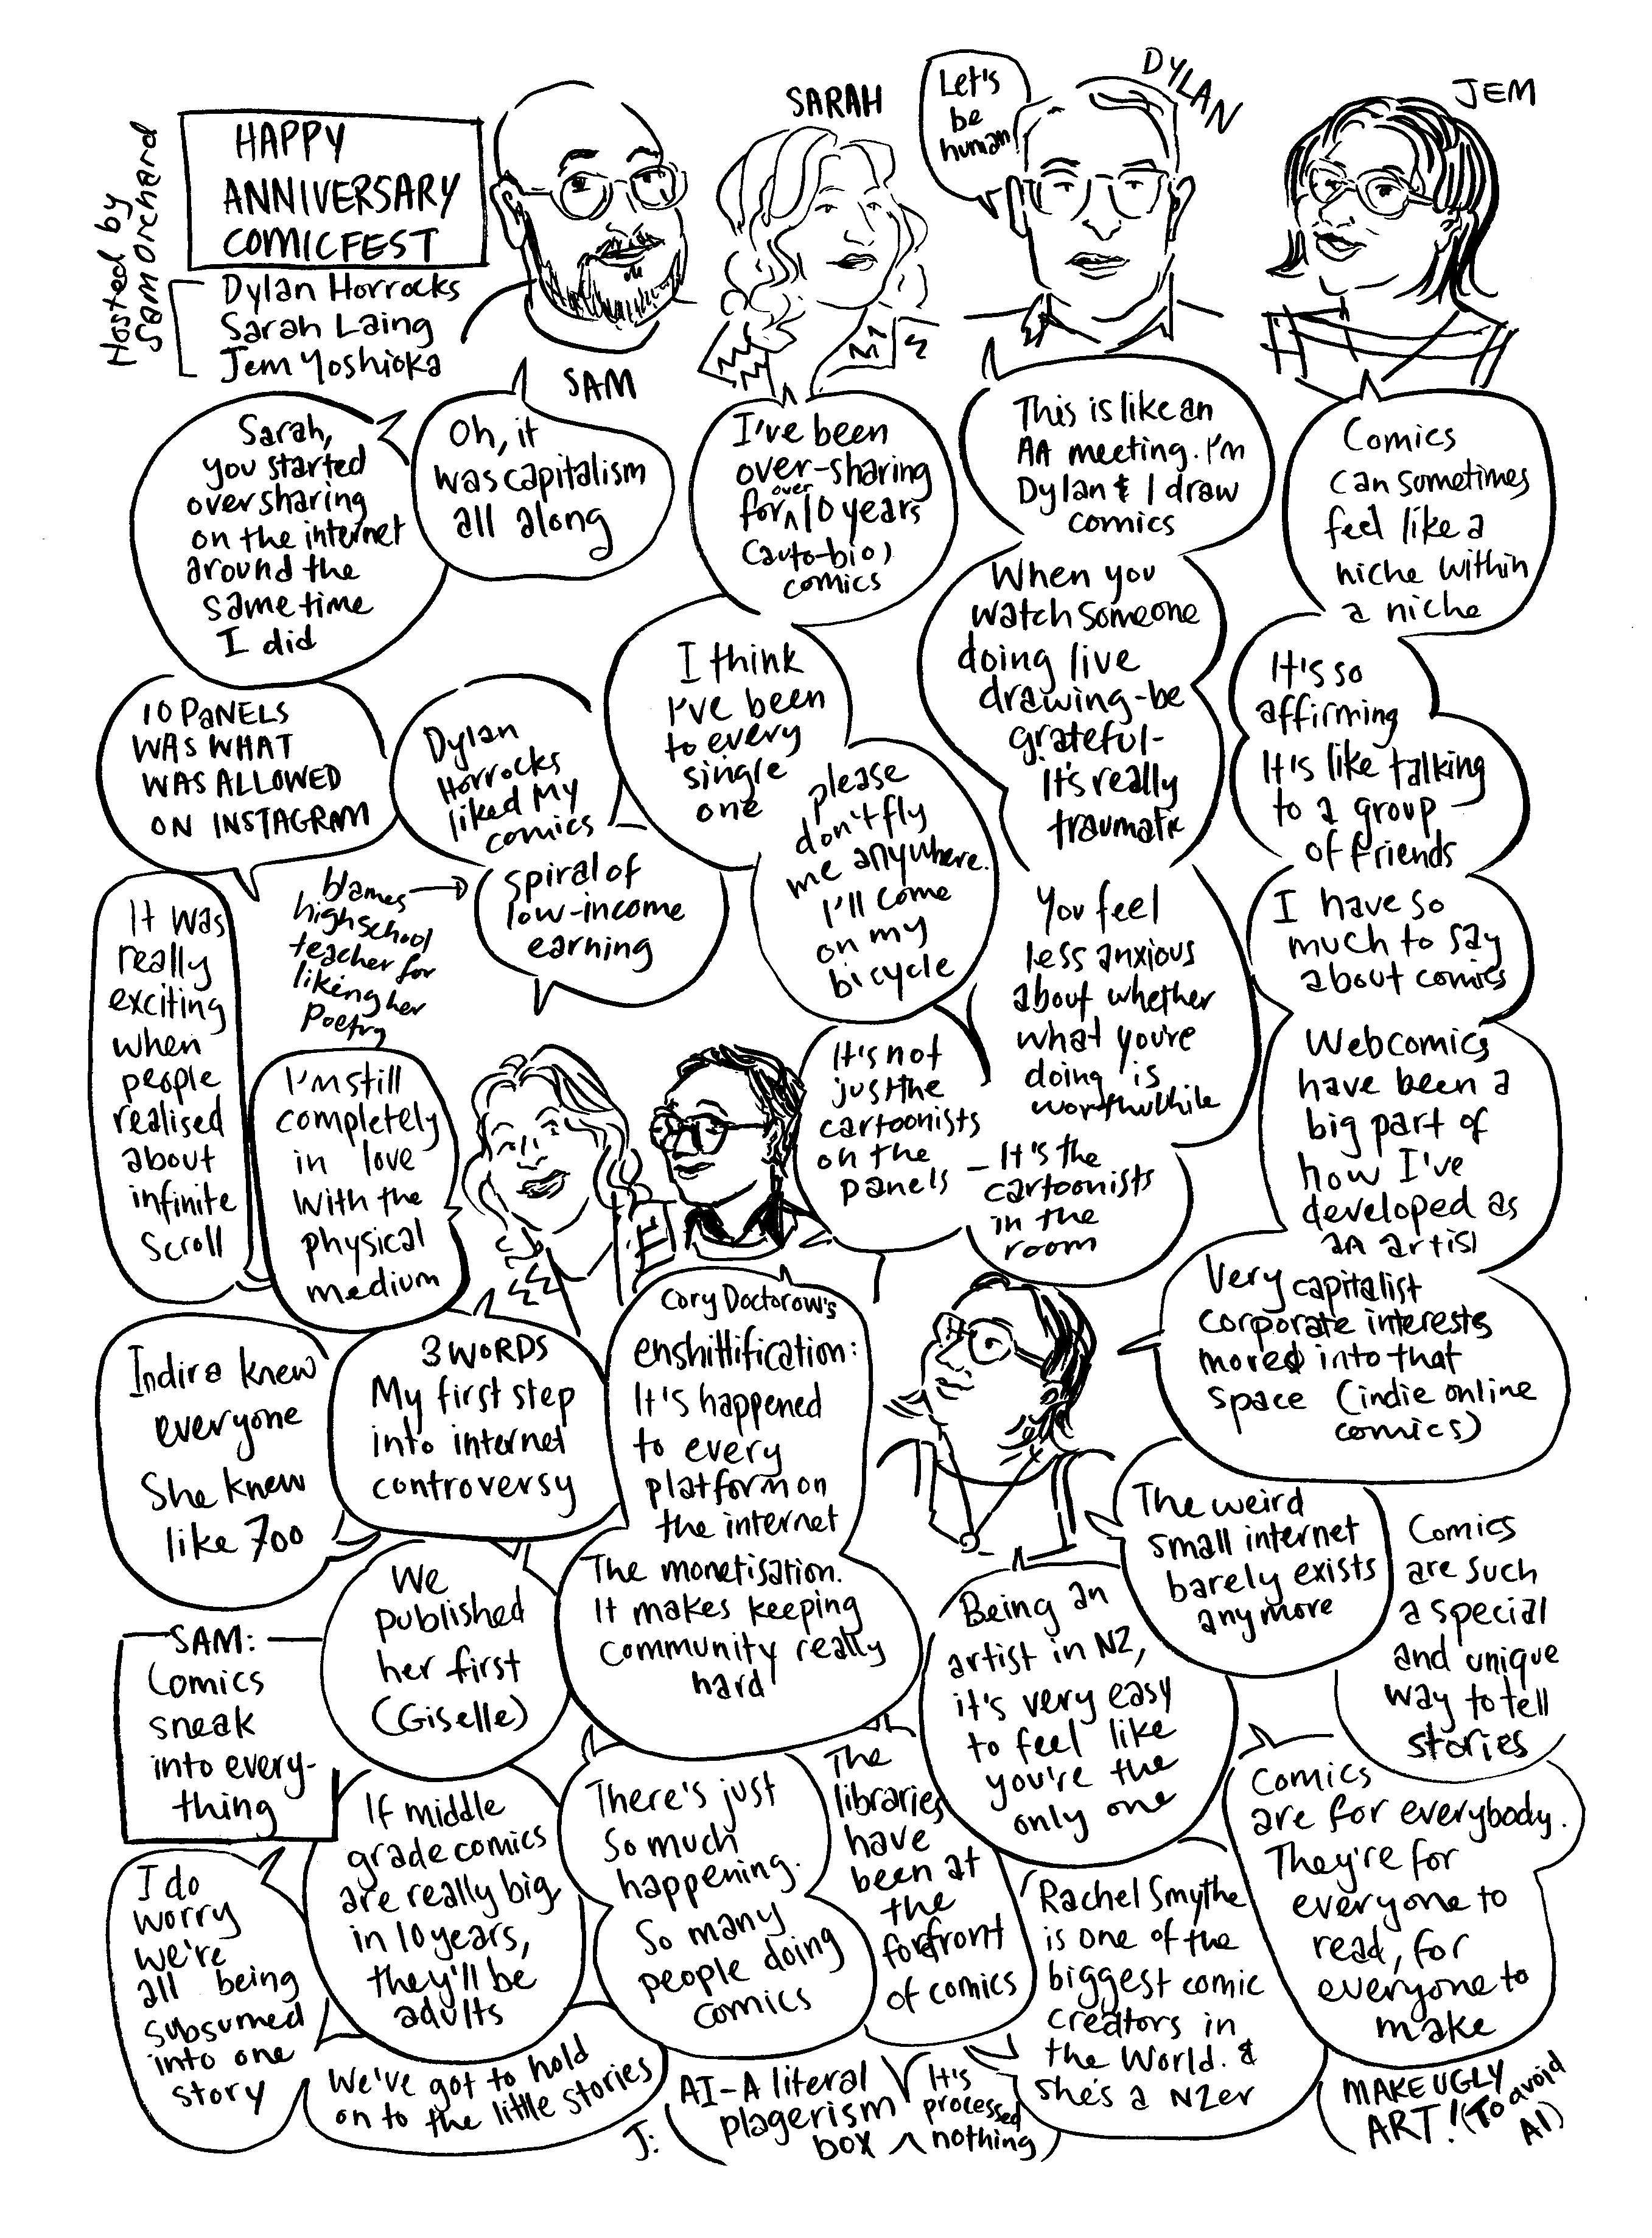 HAPPY
ANNIVERSARY
COMICFEST
Hosted by
Sam Orchard
Dylan Horrocks
Sarah Laing
Jem Yoshioka
SAM
SARAH
Let's
be
human
DYLAN
JEM
Sarah,
you started
oversharing
on the internet
around the
same time
I did
Oh, it
was capitalism
all along
I've been
over-sharing
for over 10 years
(auto-bio)
comics
This is like an
AA meeting. I'm
Dylan & I draw
comics
Comics
can sometimes
feel like a
niche within
a niche
10 PANELS
WAS WHAT
WAS ALLOWED
ON INSTAGRAM
Dylan
Horrocks
liked my
comics
I think
I've been
to every
single
one
When you
watch someone
doing live
drawing-be
grateful-
It's really
traumatic
It's so
affirming
It's like talking
to a group
of friends
please
don't fly
me anywhere.
I'll come
on my
bicycle
It was
really
exciting
when
people
realised
about
infinite
scroll
blames
highschool
teacher for
liking her
poetry
spiral of
low-income
earning
You feel
less anxious
about whether
what you're
doing is
worthwhile
I have so
much to say
about comics
I'm still
completely
in love
with the
physical
medium
It's not
just the
cartoonists
on the
panels
- It's the
cartoonists
in the
room
Webcomics
have been a
big part of
how I've
developed as
an artist
Indira knew
everyone
She knew
like 700
3 WORDS
My first step
into internet
controversy
Cory Doctorow's
enshittification:
It's happened
to every
platform on
the internet
The monetisation.
It makes keeping
community really
hard
Very capitalist
corporate interests
moved into that
space (indie online
comics)
The weird
small internet
barely exists
anymore
Comics
are such
a special
and unique
way to tell
stories
We
published
her first
(Giselle)
SAM:
Comics
sneak
into every-
thing
Being an
artist in NZ,
it's very easy
to feel like
you're the
only one
I do
worry
we're
all being
subsumed
into one
story
If middle
grade comics
are really big
in 10 years,
they'll be
adults
There's just
so much
happening.
So many
people doing
comics
The
libraries
have
been at
the
forefront
of comics
Comics
are for everybody.
They're for
everyone to
read, for
everyone to
make
We've got to hold
on to the little stories
Rachel Smythe
is one of the
biggest comic
creators in
the World. &
she's a NZer
J:
AI-A literal
plagerism
box
It's
processed
nothing
MAKE UGLY
ART! (To avoid
AI)